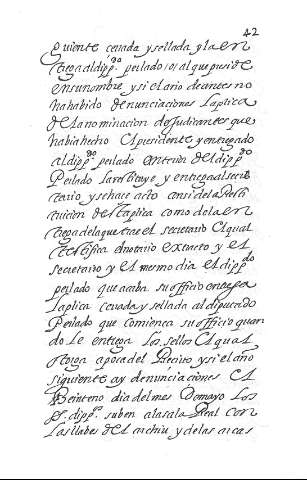 42
guiente cerrada y sellada y la en
trega al dipp.do perlado o al que preside
en su nombre y si el año de antes no
ha habido denunciaciones La plica
de La nominacion de Judicantes que
habia hecho El presidente y entregado
al dipp.do perlado entrein del dipp.do
Perlado La restituye y entrega al secre
tario y se hace acto ansi de la Resti
tuicion de la plica como de la en
trega de la que trae el secretario El qual
testifica el notario extracto y el
secretario y el mesmo dia el dipp.do
perlado que acaba su officio entrega
La plica cerrada y sellada al diputado
Perlado que comienca su officio quan
do Le entrega Los sellos El qual
otorga apoca del Recivo y si el año
siguiente ay denunciaciones El
Veinteno dia del mes de mayo Los
ss. dipp.os suben a la sala Real con
Las llabes del archiu y de las arcas